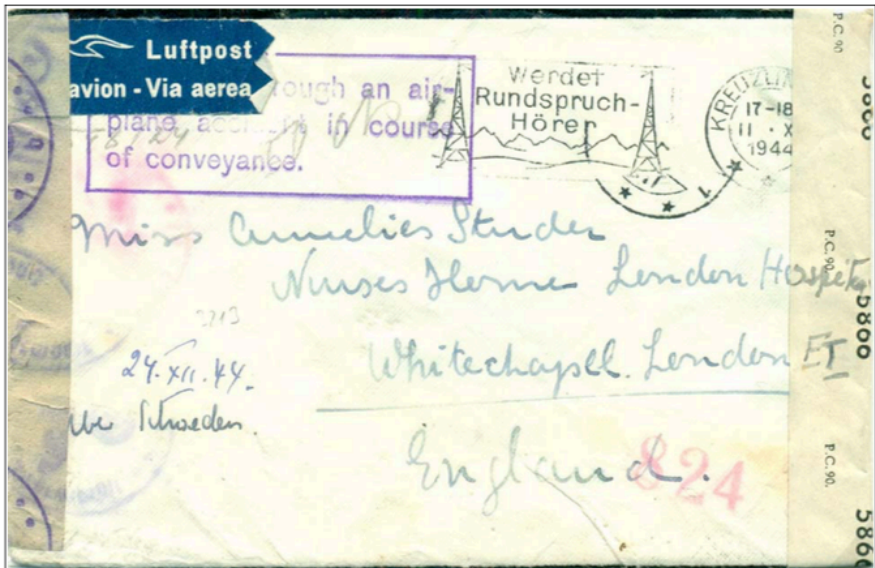 Luftpost
avion - Via aerea
rough an air-
plane accident in course
of conveyance.
Werdet
Rundspruch-
Hörer
KREUZLIN
17-18
11 · X
1944
1
Miss Annelies Studer
Nurses Home London Hospital
Whitechapell. London E1
England.
824
3213
24. XII. 44.
P.C. 90
5860
P.C. 90.
5860
P.C. 90.
5860